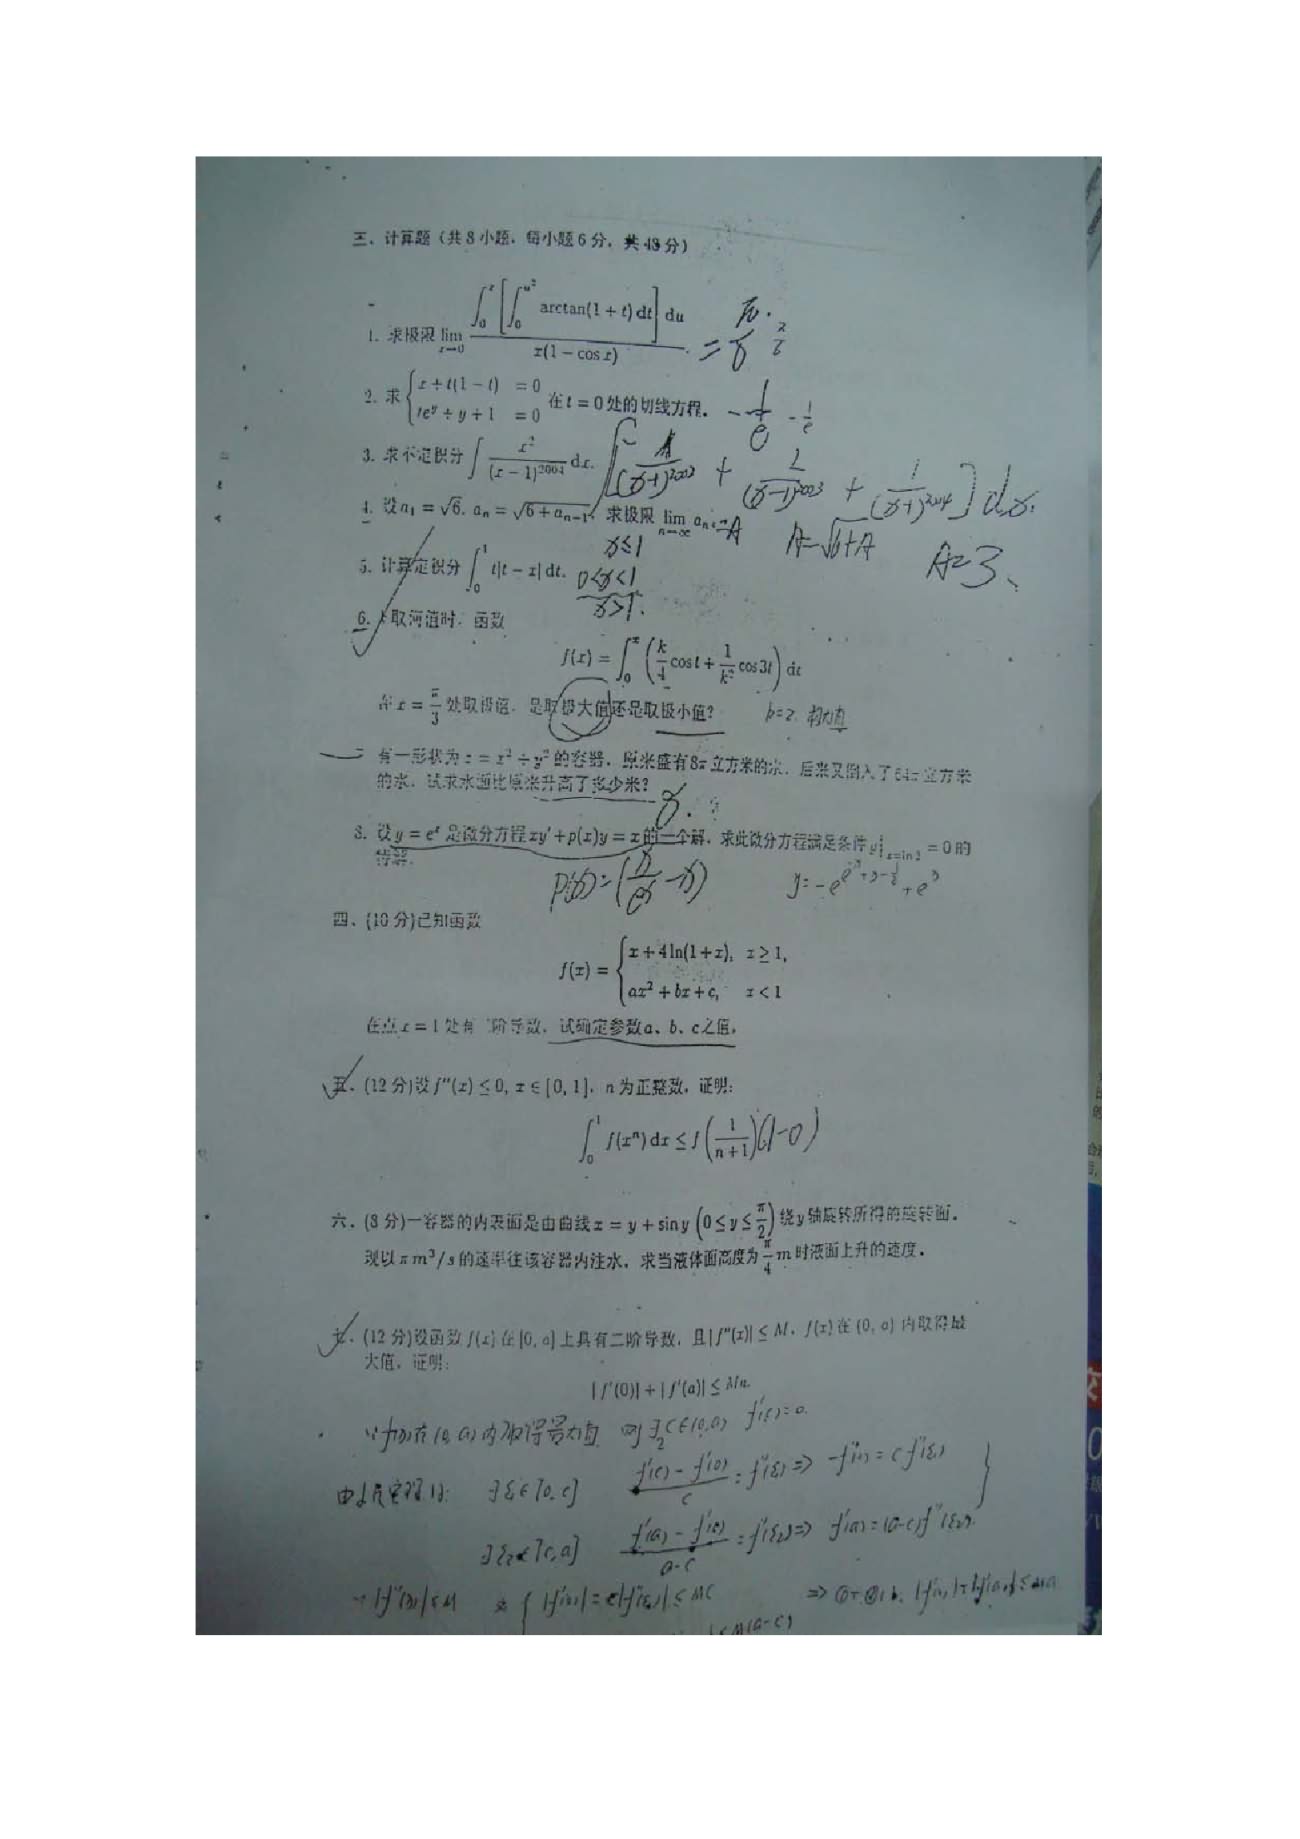 三、计算题（共8小题，每小题6分，共48分）
1. 求极限 lim x→0 ∫₀ˣ [∫₀^{u²} arctan(1+t) dt] du / x(1−cos x) = π/6
2. 求 { x+t(1−t) = 0
te^y+y+1 = 0 在 t=0 处的切线方程. −1/e −1/e
3. 求不定积分 ∫ x²/(x−1)^{2004} dx.
4. 设 a₁=√6, aₙ=√(6+aₙ₋₁), 求极限 lim n→∞ aₙ =A A=√(6+A) A=3
x≤1
5. 计算定积分 ∫₀¹ t|t−x| dt. 0<x<1
x>1.
6. 取何值时，函数
f(x) = ∫₀ˣ (k/4 cos t + 1/k² cos 3t) dt
在 x=π/3 处取极值，是取极大值还是取极小值？ k=2
有一形状为 z=x²+y² 的容器，原来盛有8π立方米的水，后来又倒入了64π立方米
的水，试求水面比原来升高了多少米？ 8.
8. 设 y=eˣ 是微分方程 xy'+p(x)y=x 的一个解，求此微分方程满足条件 y|ₓ₌ₗₙ₂ =0 的
特解.
四、(10分)已知函数
f(x) = { x+4ln(1+x), x≥1,
ax²+bx+c, x<1
在点 x=1 处有二阶导数，试确定参数a、b、c之值.
五、(12分)设 f''(x)≤0, x∈[0,1]，n为正整数，证明：
∫₀¹ f(xⁿ) dx ≤ f(1/(n+1)) (1−0)
六、(8分)一容器的内表面是由曲线 x=y+sin y (0≤y≤π/2) 绕y轴旋转所得的旋转面.
现以 π m³/s 的速率往该容器内注水，求当液体面高度为 π/4 m 时液面上升的速度.
七、(12分)设函数 f(x) 在 [0, a] 上具有二阶导数，且 |f''(x)|≤M，f(x) 在 (0, a) 内取得最
大值，证明：
|f'(0)|+|f'(a)|≤Ma.
∵f(x)在(0,a)内取得最大值 则∃c∈(0,a) f'(c)=0.
∃ξ₁∈[0,c] (f'(c)−f'(0))/c = f''(ξ₁) ⇒ −f'(0)=c f''(ξ₁)
∃ξ₂∈[c,a] (f'(a)−f'(c))/(a−c) = f''(ξ₂) ⇒ f'(a)=(a−c)f''(ξ₂)
|f''(x)|≤M |f'(0)|=c|f''(ξ₁)|≤MC
≤M(a−c)